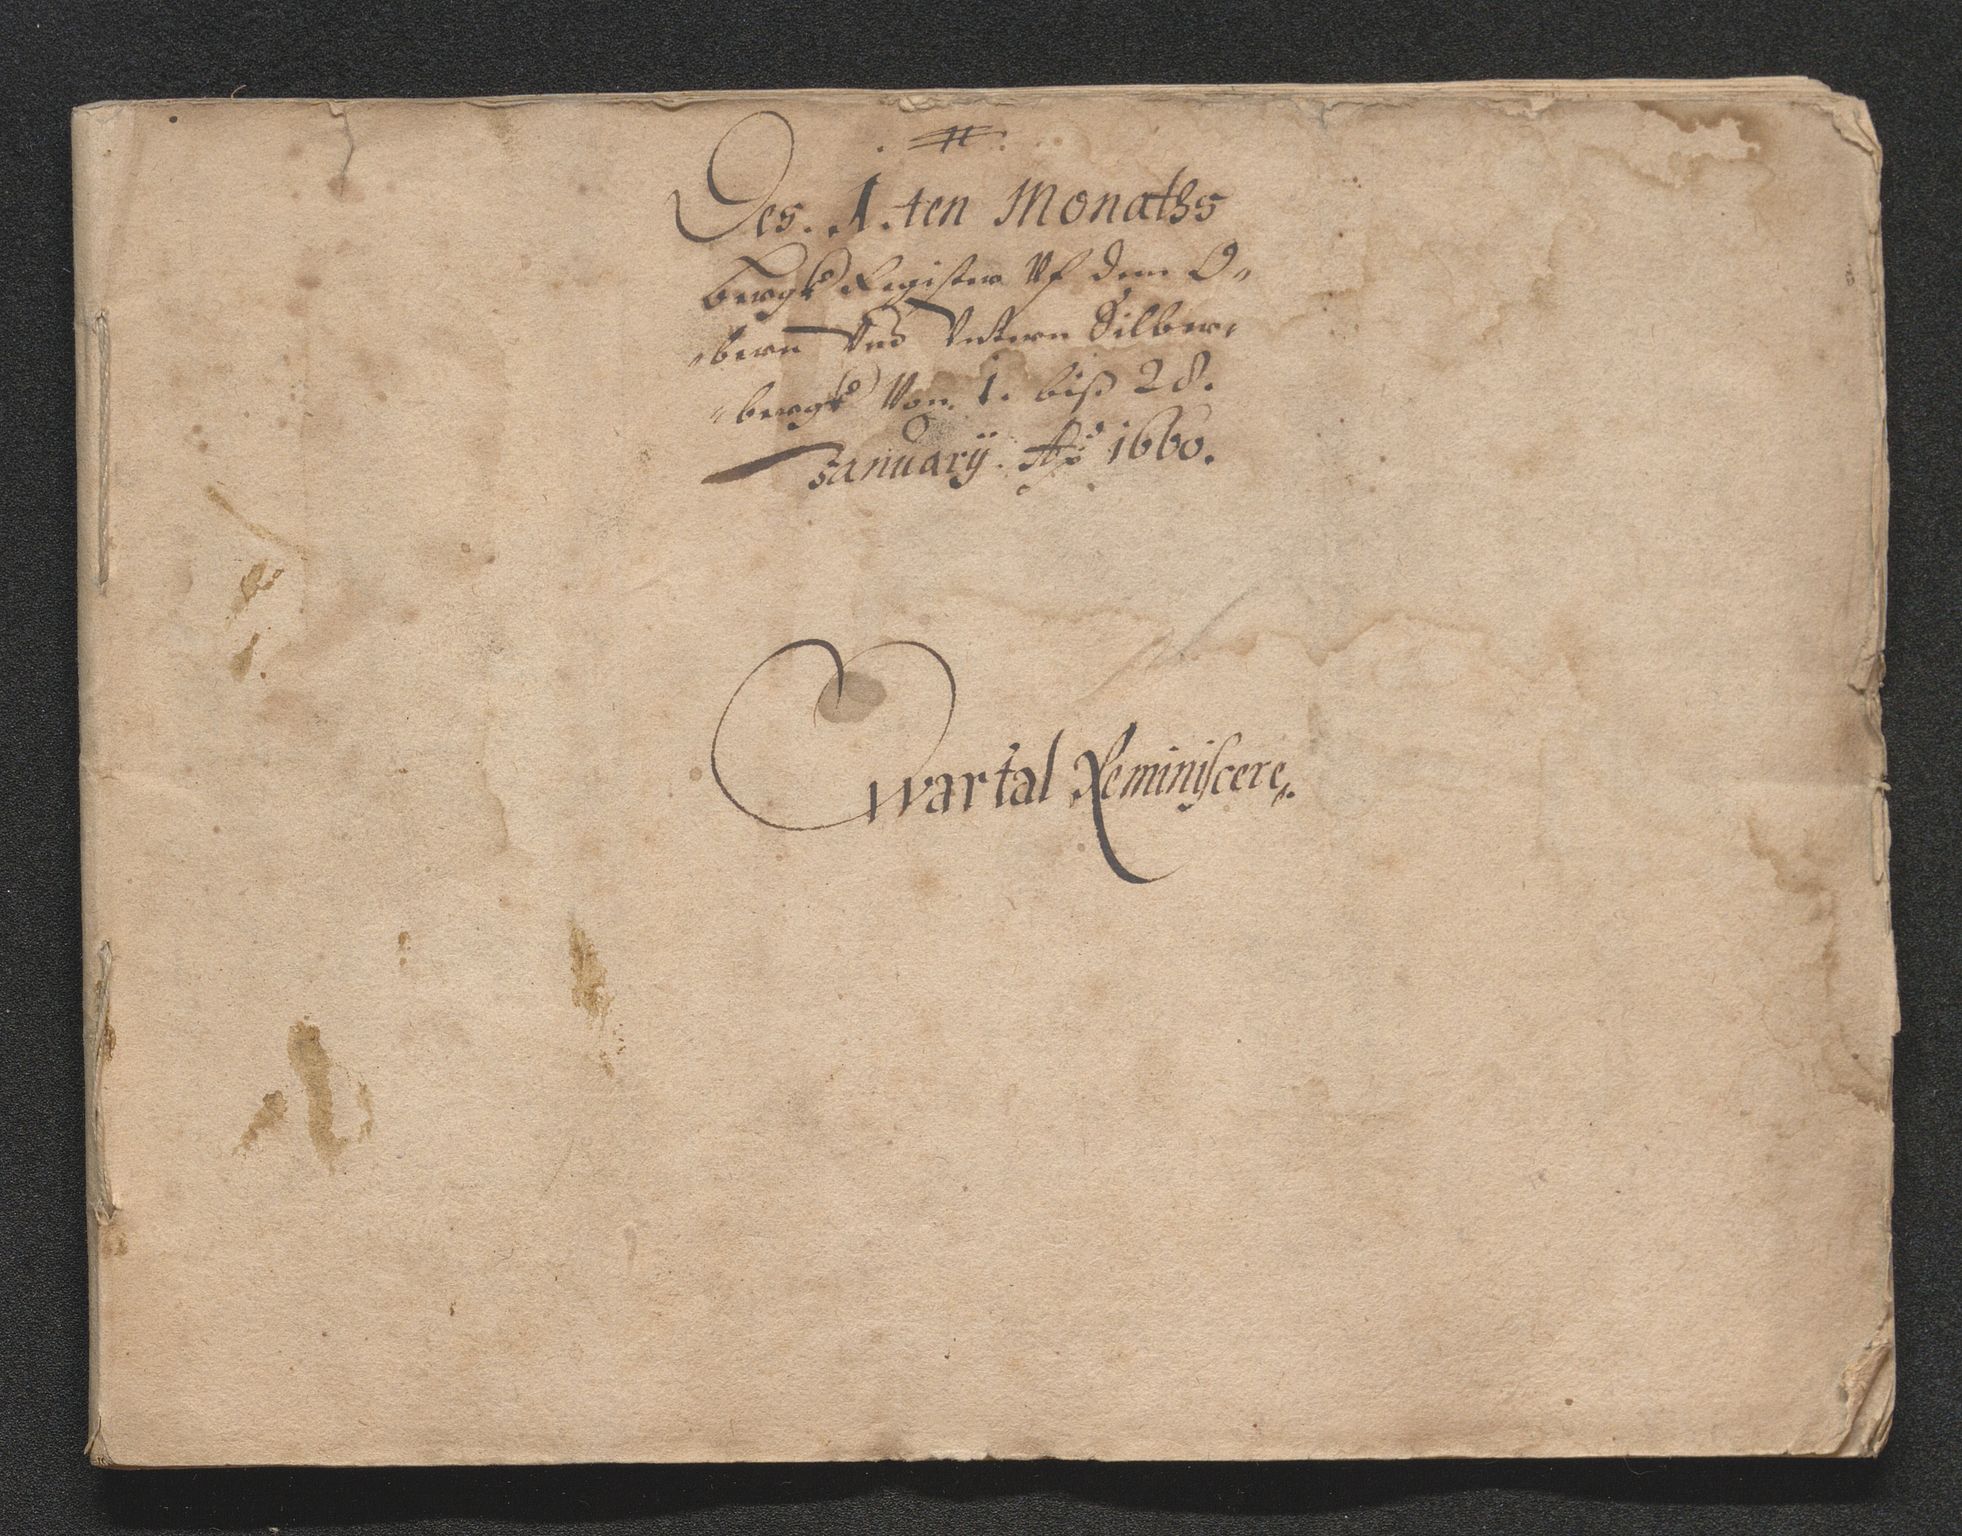 Des. 1.ten Monaths
Bergk Register Vf dem O-
-bern Vnd Vntern Silber-
-bergk Von. 1. biß 28.
Januarÿ. Ao 1660.
Qvartal Reminiscere.